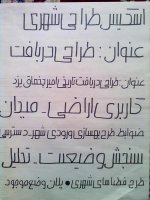 اسکیس طراحی شهری
عنوان: طراحی دریافت
عنوان: طراحی دریافت تاریخی امیرچخماق یزد
کاربری اراضی. میدان
ضوابط. طرح بهسازی ورودی شهر. دسترسی
سنجش وضعیت. تحلیل
طرح فضاهای شهری • پلان وضع موجود